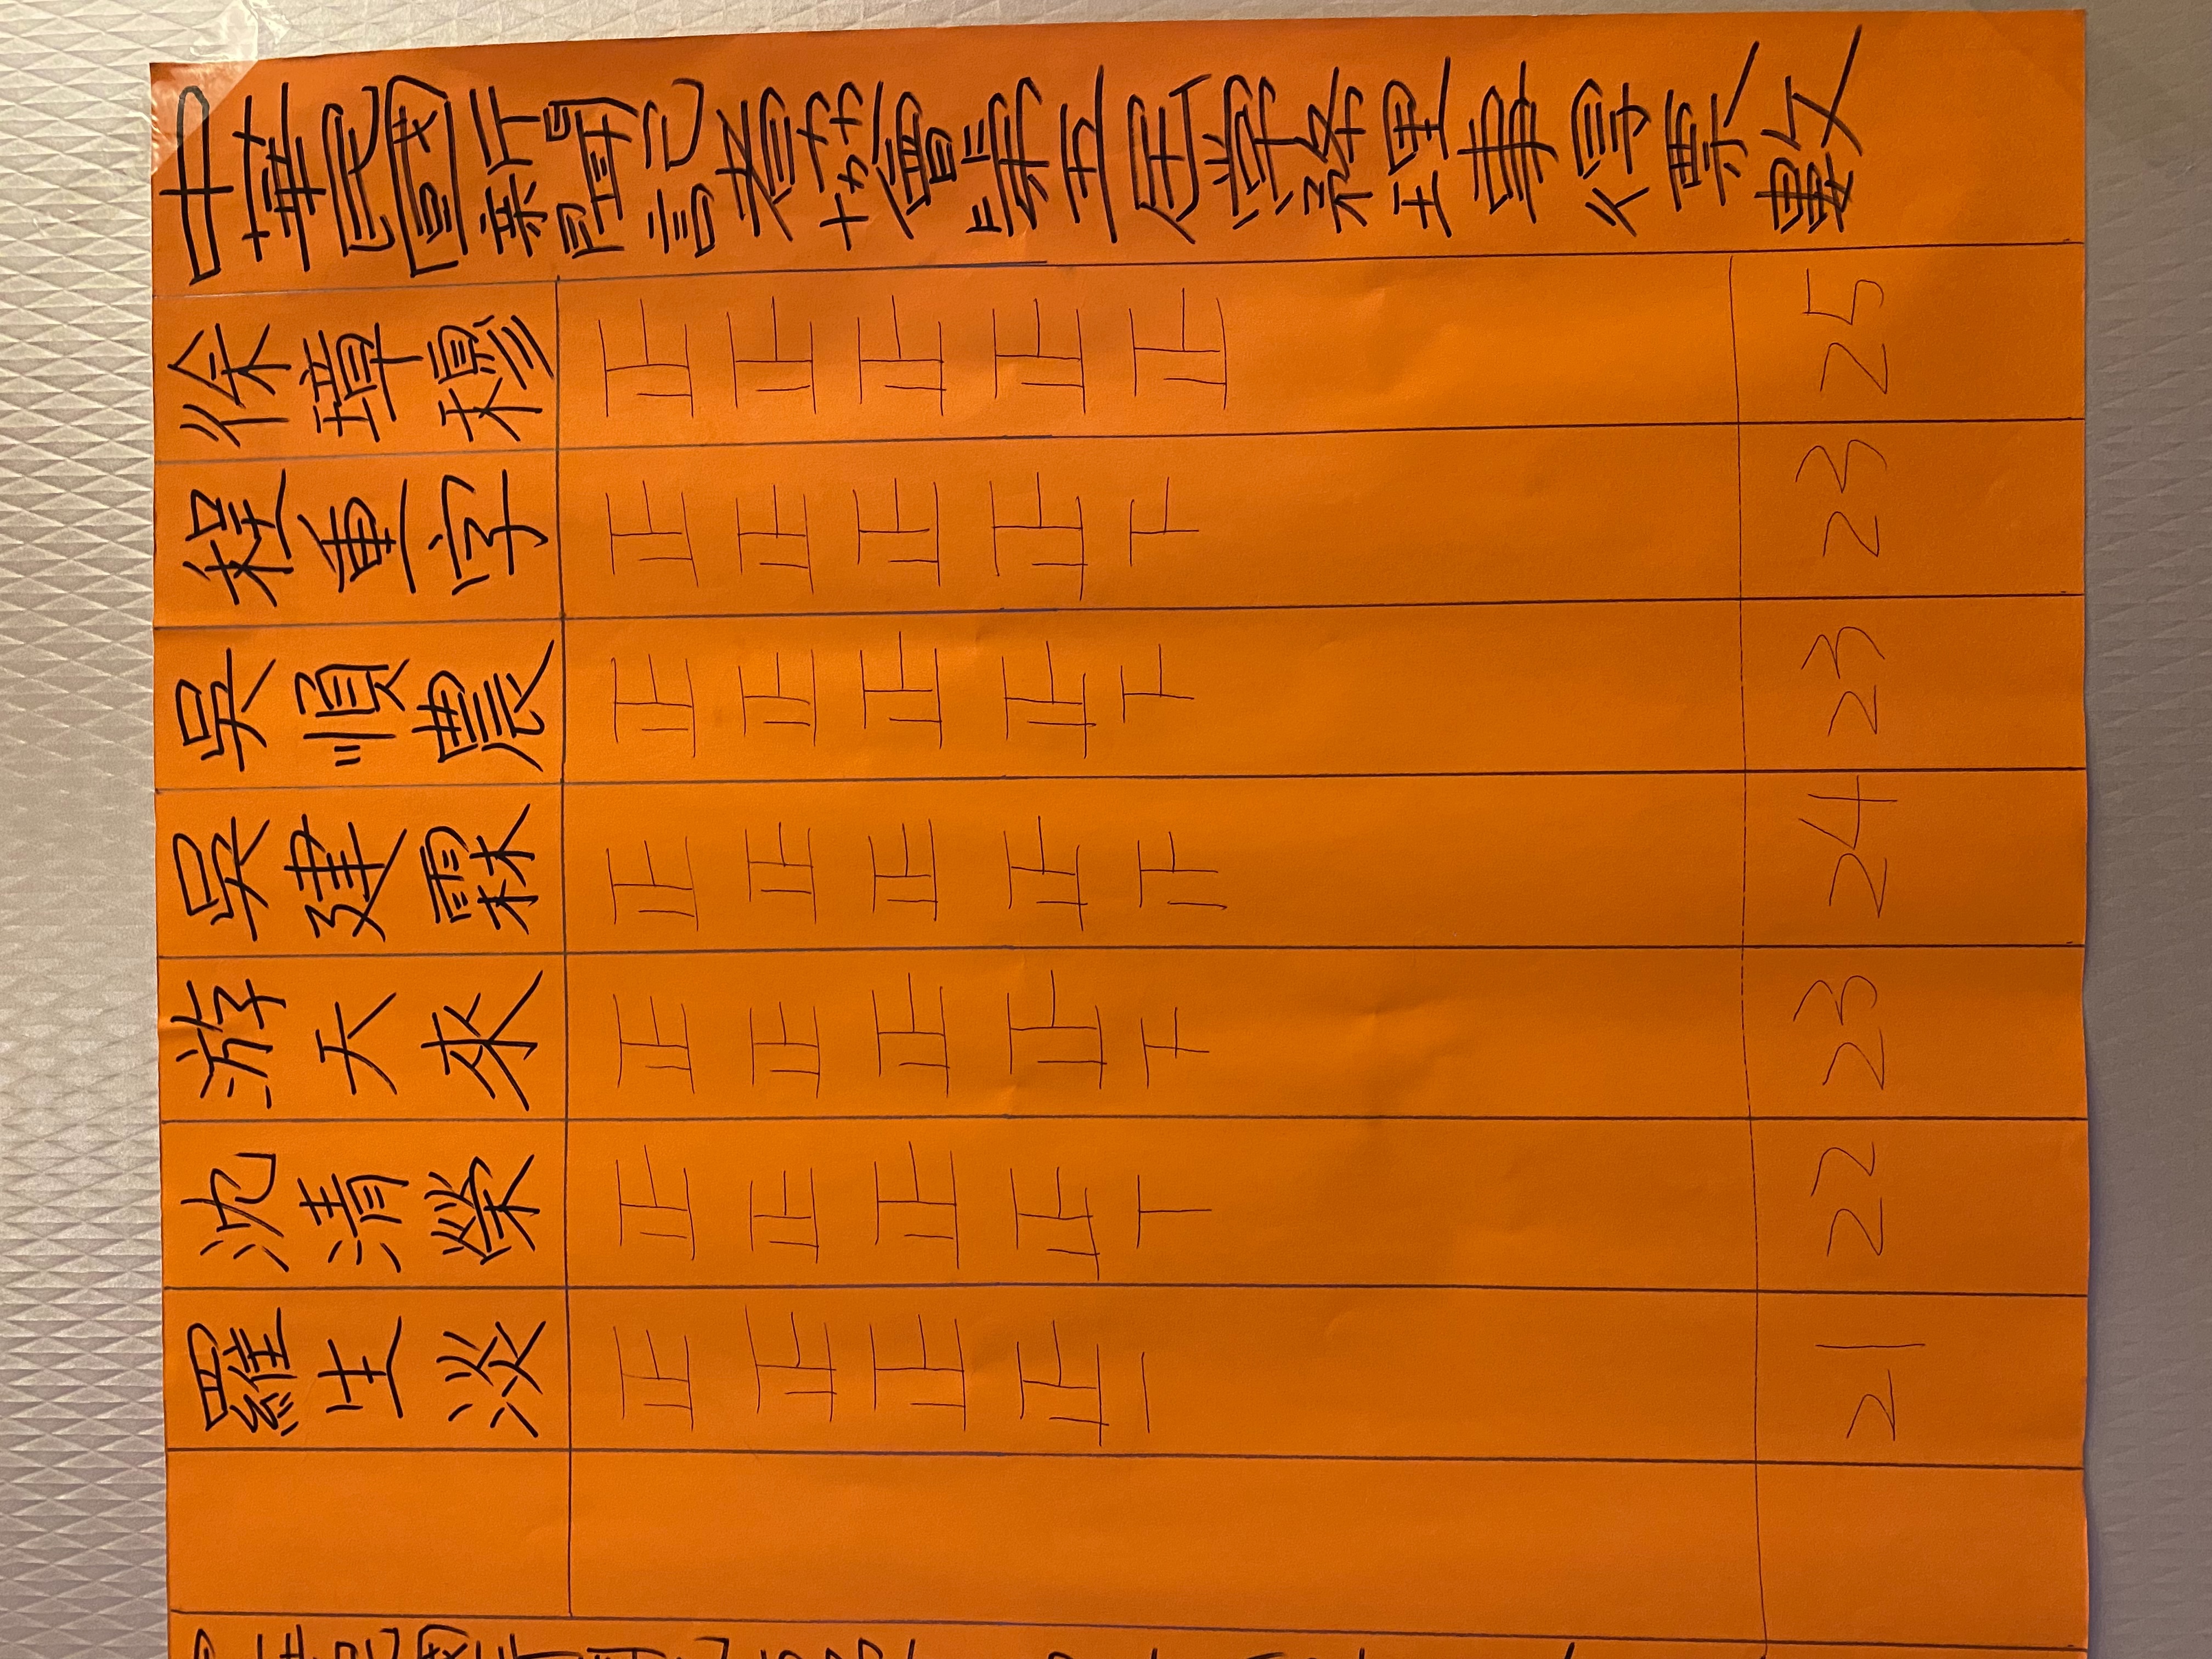 中華民國新聞記者協會第五屆常務理事得票數
徐璋穆 正正正正正 25
程重宇 正正正正下 23
吳順農 正正正正下 23
吳建霖 正正正正 24
游天來 正正正正下 23
沈清榮 正正正正丅 22
羅生淡 正正正正一 21